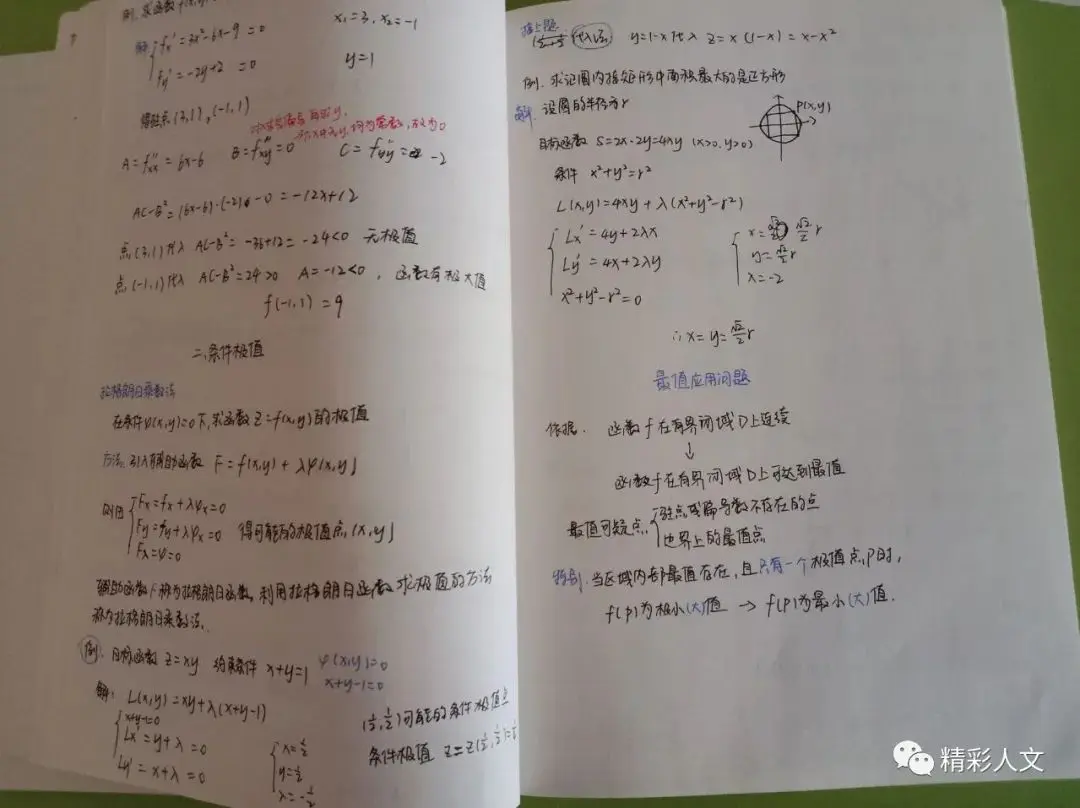 例. 求函数 f(x,y)
解 { fx' = 3x²-6x-9 = 0
x₁=3, x₂=-1
fy' = -2y+2 = 0
y=1
得驻点 (3,1), (-1,1)
A = f''xx = 6x-6 B = f''xy = 0 C = f''yy = -2
AC-B² = (6x-6)·(-2) - 0 = -12x+12
点(3,1)代入 AC-B² = -36+12 = -24<0 无极值
点(-1,1)代入 AC-B²=24>0 A=-12<0, 函数有极大值
f(-1,1) = 9
二.条件极值
拉格朗日乘数法
在条件φ(x,y)=0下,求函数 z=f(x,y)的极值
方法. 引入辅助函数 F = f(x,y) + λφ(x,y)
则由 { Fx = fx + λφx = 0
Fy = fy + λφx = 0 得可能的极值点(x,y)
Fλ = φ = 0
辅助函数F称为拉格朗日函数,利用拉格朗日函数求极值的方法
称为拉格朗日乘数法.
例. 目标函数 z=xy 约束条件 x+y=1 φ(x,y)=0
x+y-1=0
解: L(x,y) = xy+λ(x+y-1)
{ x+y-1=0
Lx' = y+λ = 0
Ly' = x+λ = 0
{ x=½
y=½
λ=-½
(½,½)可能的条件极值点
条件极值 z=z(½,½)=¼
接上题
代入法 y=1-x代入 z=x(1-x)=x-x²
例. 求证圆内接矩形中面积最大的是正方形
解. 设圆的半径为r
P(x,y)
目标函数 S=2x·2y=4xy (x>0,y>0)
条件 x²+y²=r²
L(x,y)=4xy+λ(x²+y²-r²)
{ Lx' = 4y+2λx
Ly' = 4x+2λy
x²+y²-r²=0
{ x= √2/2 r
y= √2/2 r
λ=-2
∴x=y=√2/2 r
最值应用问题
依据. 函数 f 在有界闭域D上连续
↓
函数f在有界闭域D上可达到最值
最值可疑点 { 驻点或偏导数不存在的点
边界上的最值点
特别. 当区域内部最值存在,且只有一个极值点P时,
f(P)为极小(大)值 → f(P)为最小(大)值.
精彩人文